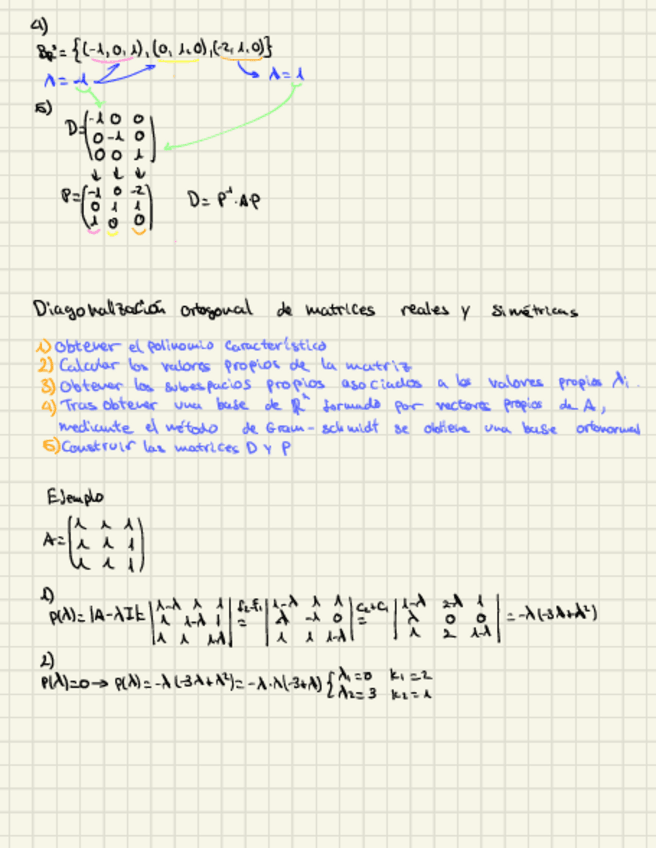 4)
Bℝ³ = {(-1,0,1),(0,1,0),(-2,1,0)}
λ = -1 λ = 1
5)
D = (-1 0 0
0 -1 0
0 0 1)
↓ ↓ ↓
P = (-1 0 -2
0 1 1
1 0 0) D = P⁻¹·A·P
Diagonalización ortogonal de matrices reales y simétricas
1) Obtener el polinomio característico
2) Calcular los valores propios de la matriz
3) Obtener los subespacios propios asociados a los valores propios λi.
4) Tras obtener una base de ℝⁿ formado por vectores propios de A,
mediante el método de Gram-schmidt se obtiene una base ortonormal
5) Construir las matrices D y P
Ejemplo
A = (1 1 1
1 1 1
1 1 1)
1)
P(λ) = |A-λI| = |1-λ 1 1; 1 1-λ 1; 1 1 1-λ| f₂-f₁ = |1-λ 1 1; λ -λ 0; 1 1 1-λ| c₂+c₁ = |1-λ 2-λ 1; λ 0 0; 1 2 1-λ| = -λ(-3λ+λ²)
2)
P(λ)=0 → P(λ) = -λ(-3λ+λ²) = -λ·λ(-3+λ) { λ₁=0 k₁=2
λ₂=3 k₂=1